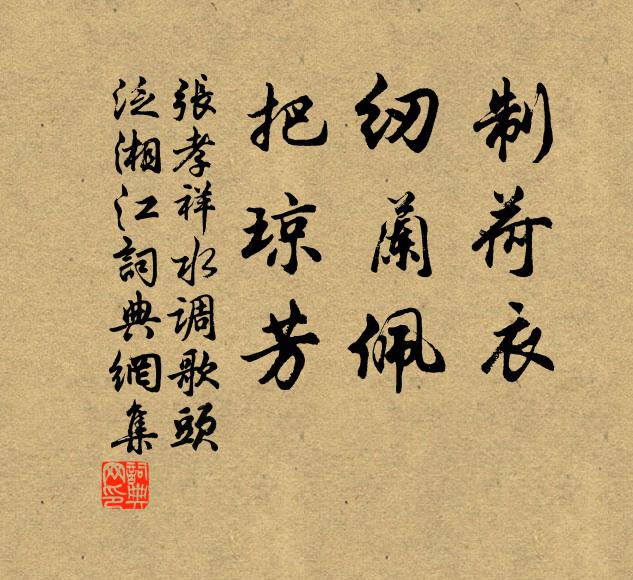 制荷衣
纫蘭佩
把琼芳
張孝祥水调歌頭
泛湘江詞典網集
詞典
网印